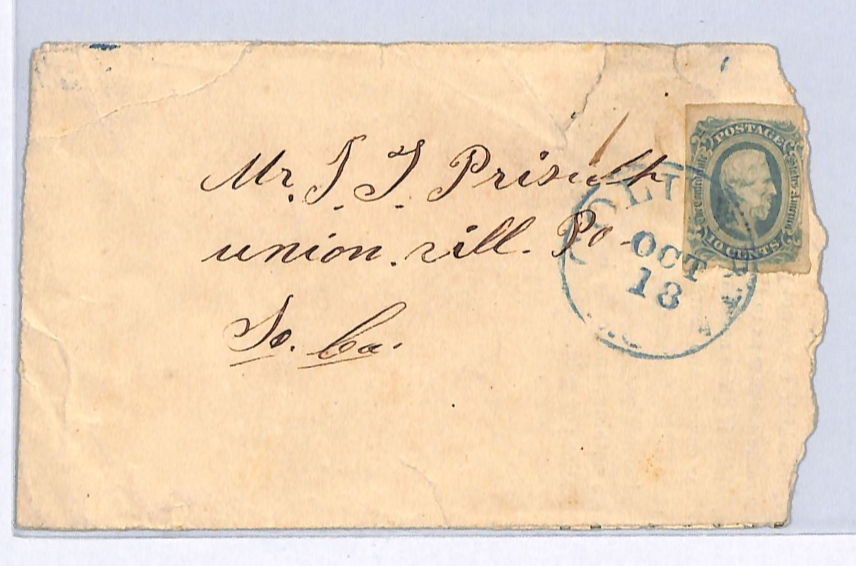 Mr. J. J.
union.vill. Po
So. Ca.
OCT
18
POSTAGE
The Confederate States of America
10 CENTS